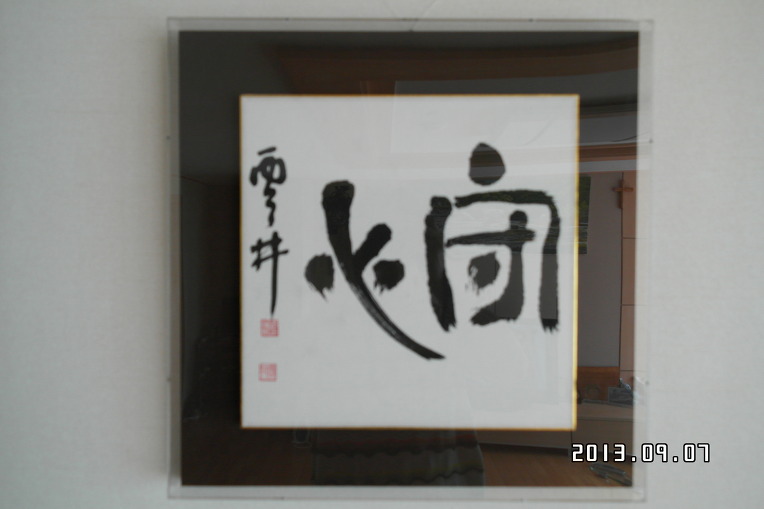 守心
雲井
2013.09.07